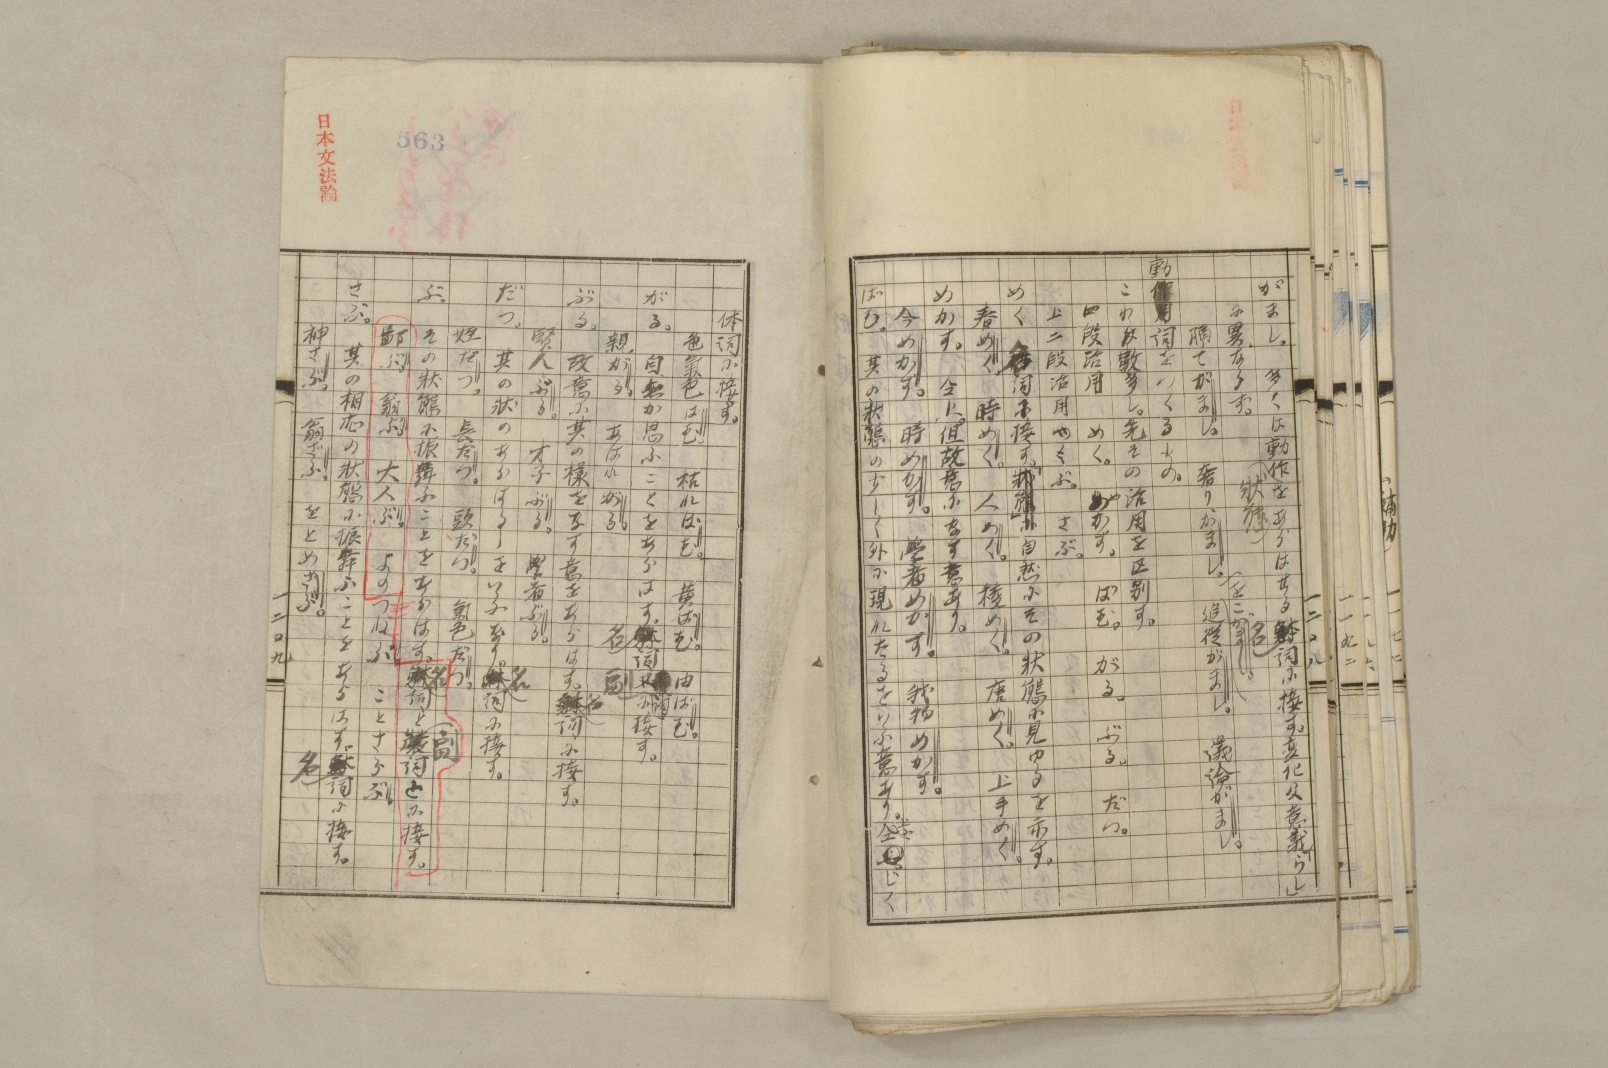 がまし。多くは動作をあらはせる名詞に接す。変化及意義「らし」
に異ならず。
隔てがまし。奢りがまし。追従がまし。議論がまし。
動詞をつくるもの。
これ及数多し。先その活用を区別す。
四段活用 めく。めかす。ばむ。がる。ぶる。だつ。
上二段活用 ぶ。さぶ。
めく 詞に接す。自然にその状態に見ゆるを示す。
春めく。時めく。人めく。稜めく。唐めく。上手めく。
めかす。仝上。但故意になす意あり。
今めかす。時めかす。学者めかす。我物めかす。
ばむ。其の状態の少しく外に現れたるをいふ意あり。仝じく
一二〇八
日本文法論
563
体詞に接す。
色気ばむ。枯ればむ。黄ばむ。由ばむ。
がる。自ら思ふことをあらはす。名詞副詞に接す。
親がる。あはれがる。
ぶる。故意に其の様をなす意をあらはす。名詞に接す。
賢人ぶる。才子ぶる。学者ぶる。
だつ。其の状のあらはるゝをいふなり。名詞に接す。
姫だつ。長だつ。頭だつ。気色だつ。
ぶ。その状態に振舞ふことをあらはす。名詞と副詞とに接す。
鄙ぶ。翁ぶ。大人ぶ。よのつねぶ。ことさらぶ。
さぶ。其の相応の状態に振舞ふことをあらはす。名詞に接す。
神さぶ。翁さぶ。をとめさぶ。
一二〇九